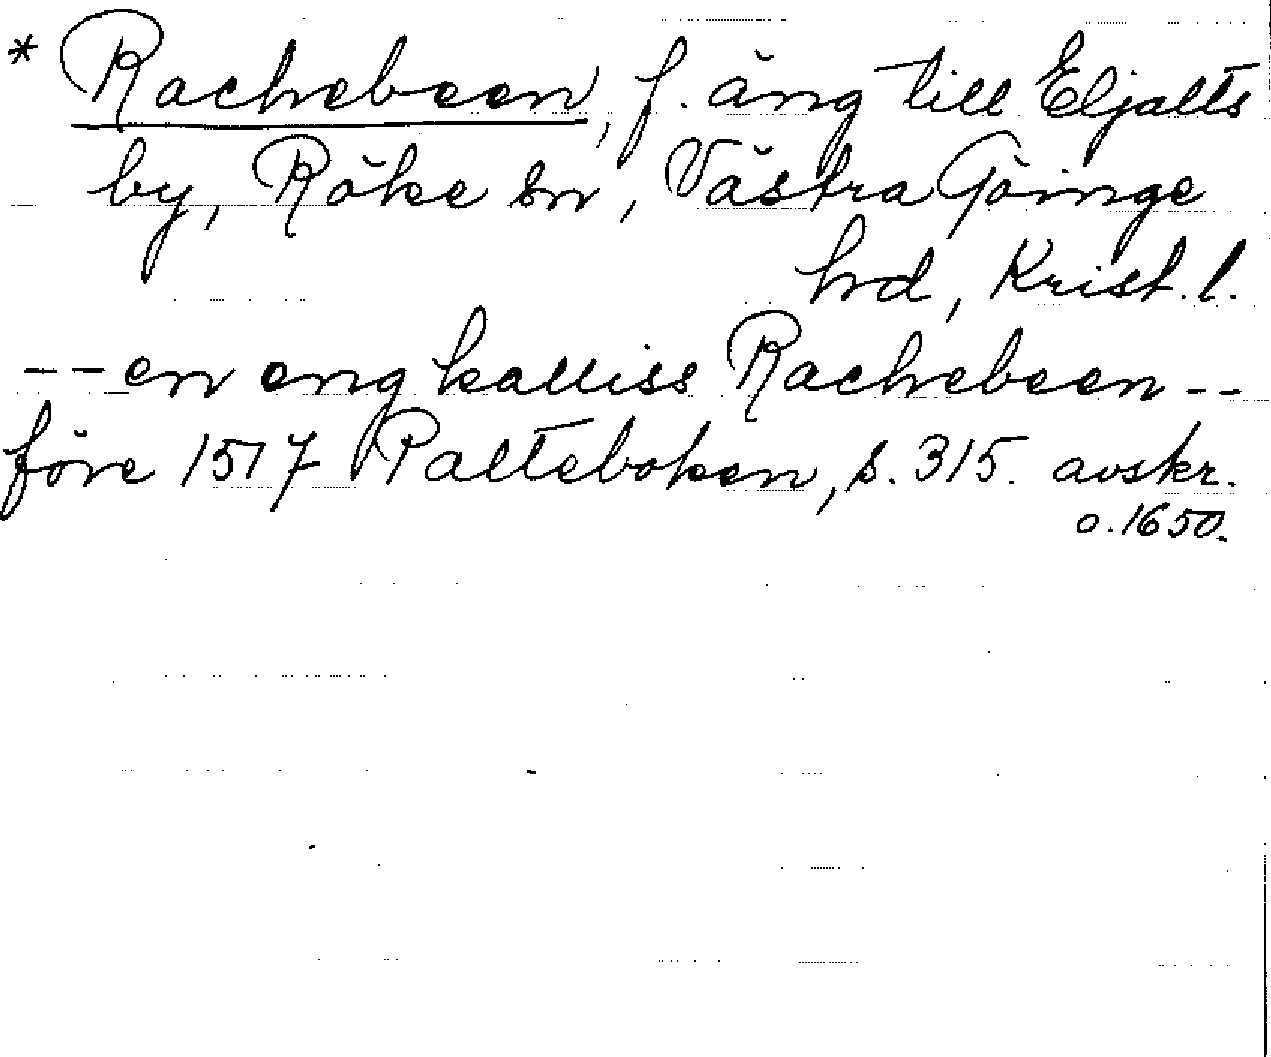 * Rachebeen, f. äng till Eljalts
by, Röke sn, Västra Göinge
hd, Krist. l.
-- en eng kalliss Rachebeen --
före 1517 Palteboken, s. 315. avskr.
o. 1650.